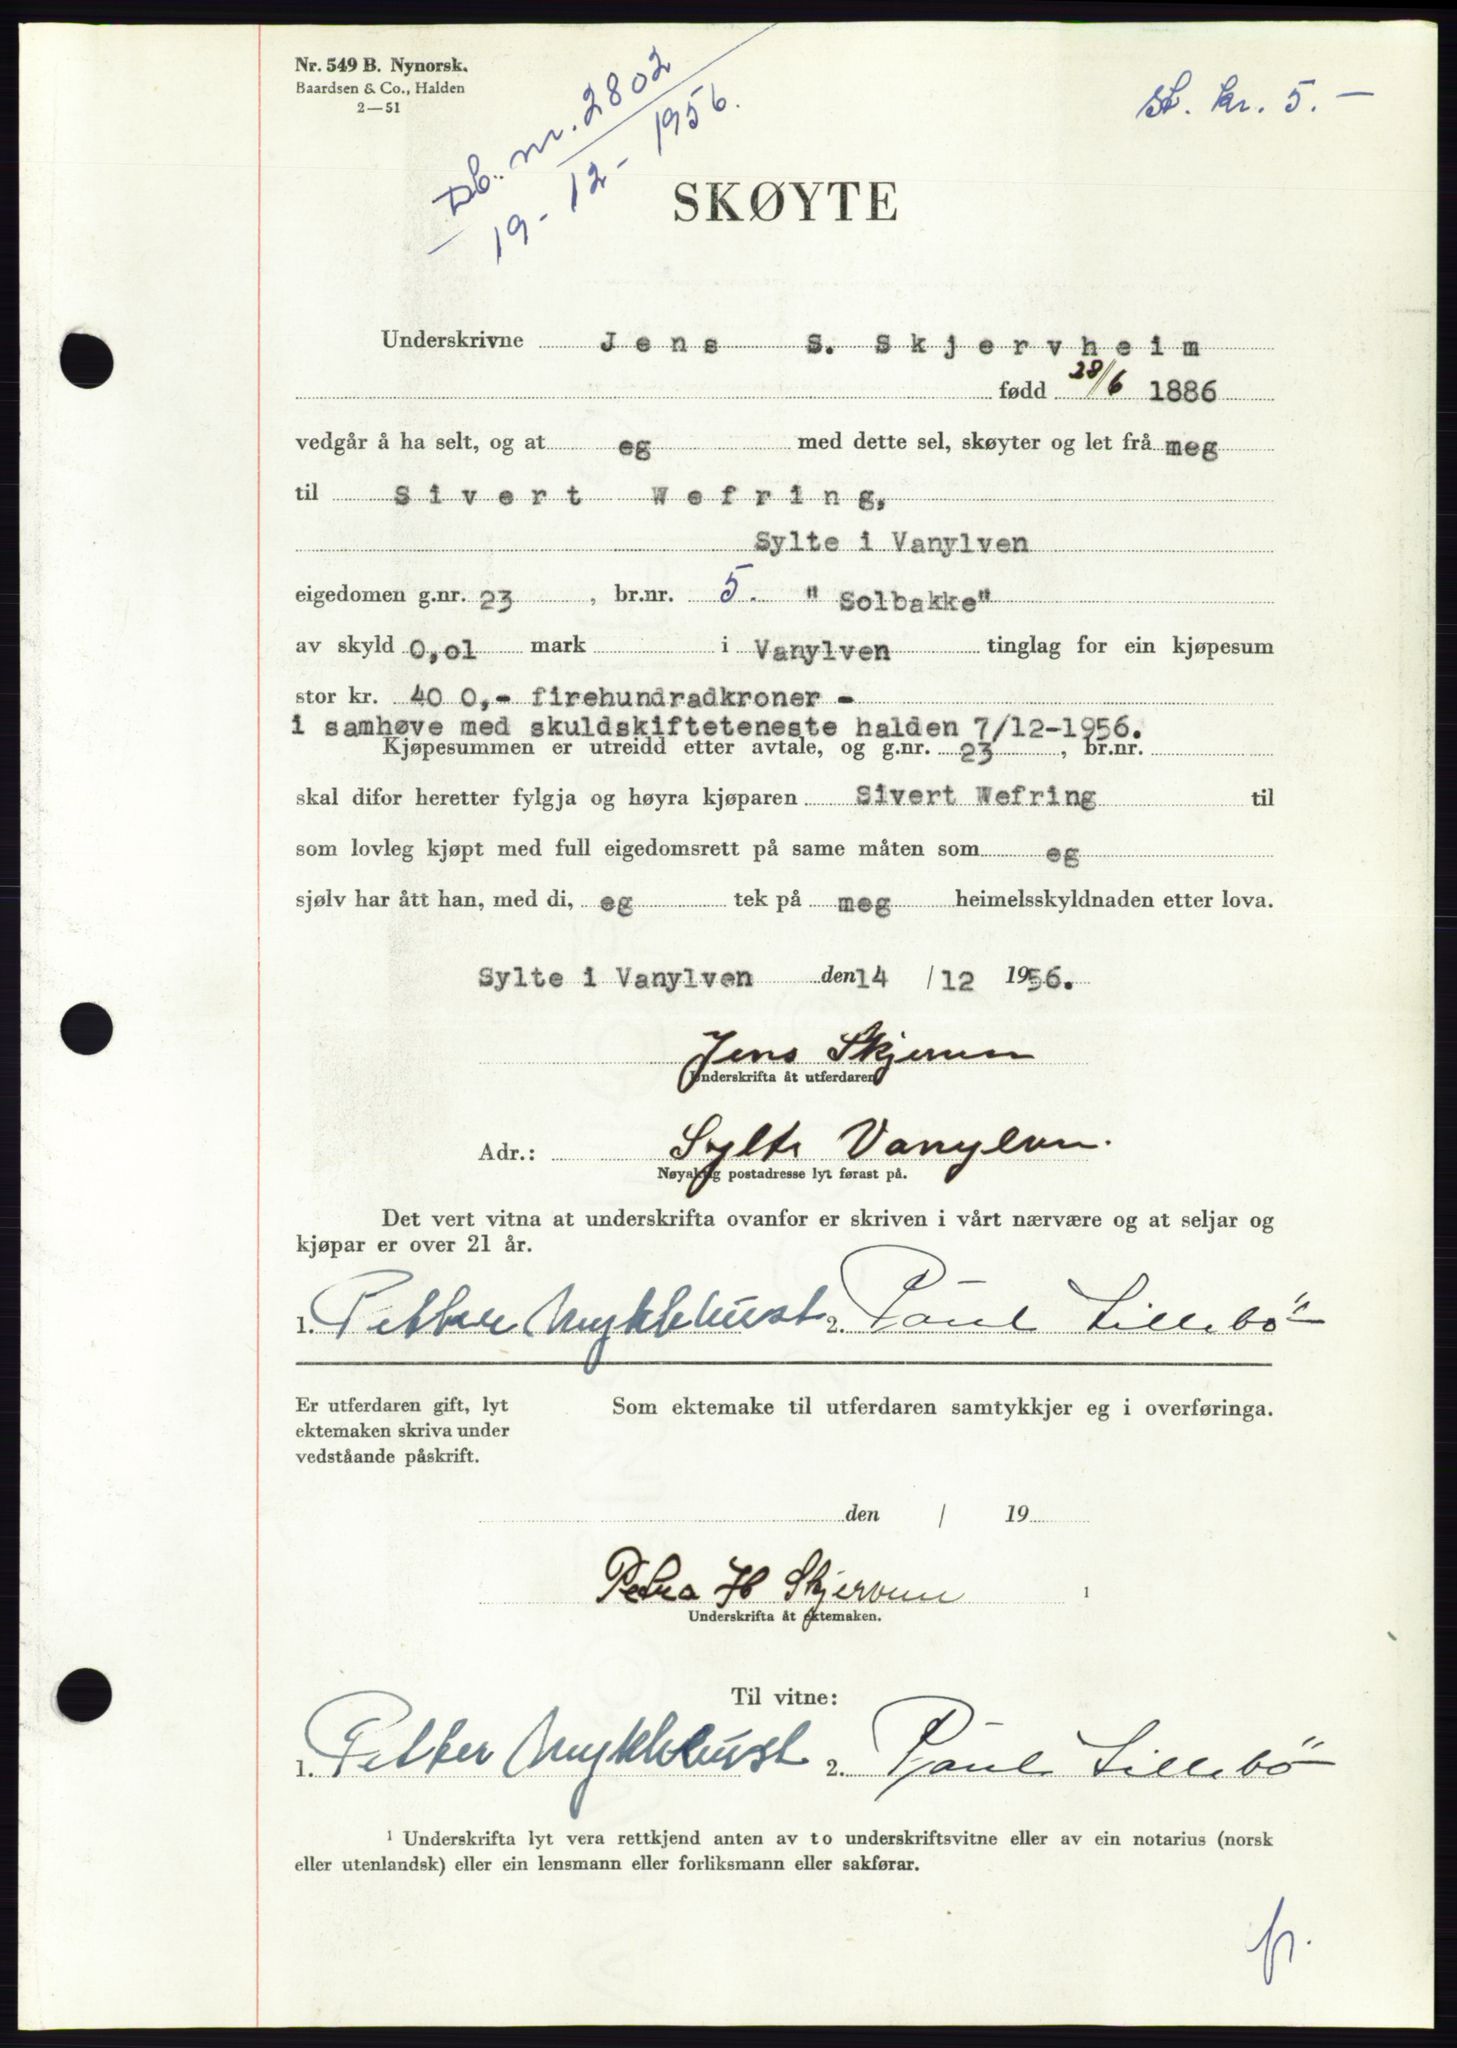 Nr. 549 B. Nynorsk.
Baardsen & Co., Halden
2—51
Db. nr. 2802
19-12-1956.
st. kr. 5.-
SKØYTE
Underskrivne Jens S. Skjervheim
født 28/6 1886
vedgår å ha selt, og at eg med dette sel, skøyter og let frå meg
til Sivert Wefring,
Sylte i Vanylven
eigedomen g.nr. 23 , br.nr. 5. "Solbakke"
av skyld 0,01 mark i Vanylven tinglag for ein kjøpesum
stor kr. 40 0,- firehundradkroner -
i samhøve med skuldskifteteneste halden 7/12-1956.
Kjøpesummen er utreidd etter avtale, og g.nr. 23 , br.nr.
skal difor heretter fylgja og høyra kjøparen Sivert Wefring til
som lovleg kjøpt med full eigedomsrett på same måten som eg
sjølv har ått han, med di, eg tek på meg heimelsskyldnaden etter lova.
Sylte i Vanylven den 14 / 12 1956.
Jens Skjervem
Underskrifta åt utferdaren
Adr.: Sylte Vanylven.
Nøyaktig postadresse lyt førast på.
Det vert vitna at underskrifta ovanfor er skriven i vårt nærvære og at seljar og
kjøpar er over 21 år.
1. Petter Myklebust 2. Paul Lillebö
Er utferdaren gift, lyt
ektemaken skriva under
vedståande påskrift.
Som ektemake til utferdaren samtykkjer eg i overføringa.
den / 19
Petra H Skjervem 1
Underskrifta åt ektemaken.
Til vitne:
1. Petter Myklebust 2. Paul Lillebö
1 Underskrifta lyt vera rettkjend anten av to underskriftsvitne eller av ein notarius (norsk
eller utenlandsk) eller ein lensmann eller forliksmann eller sakførar.